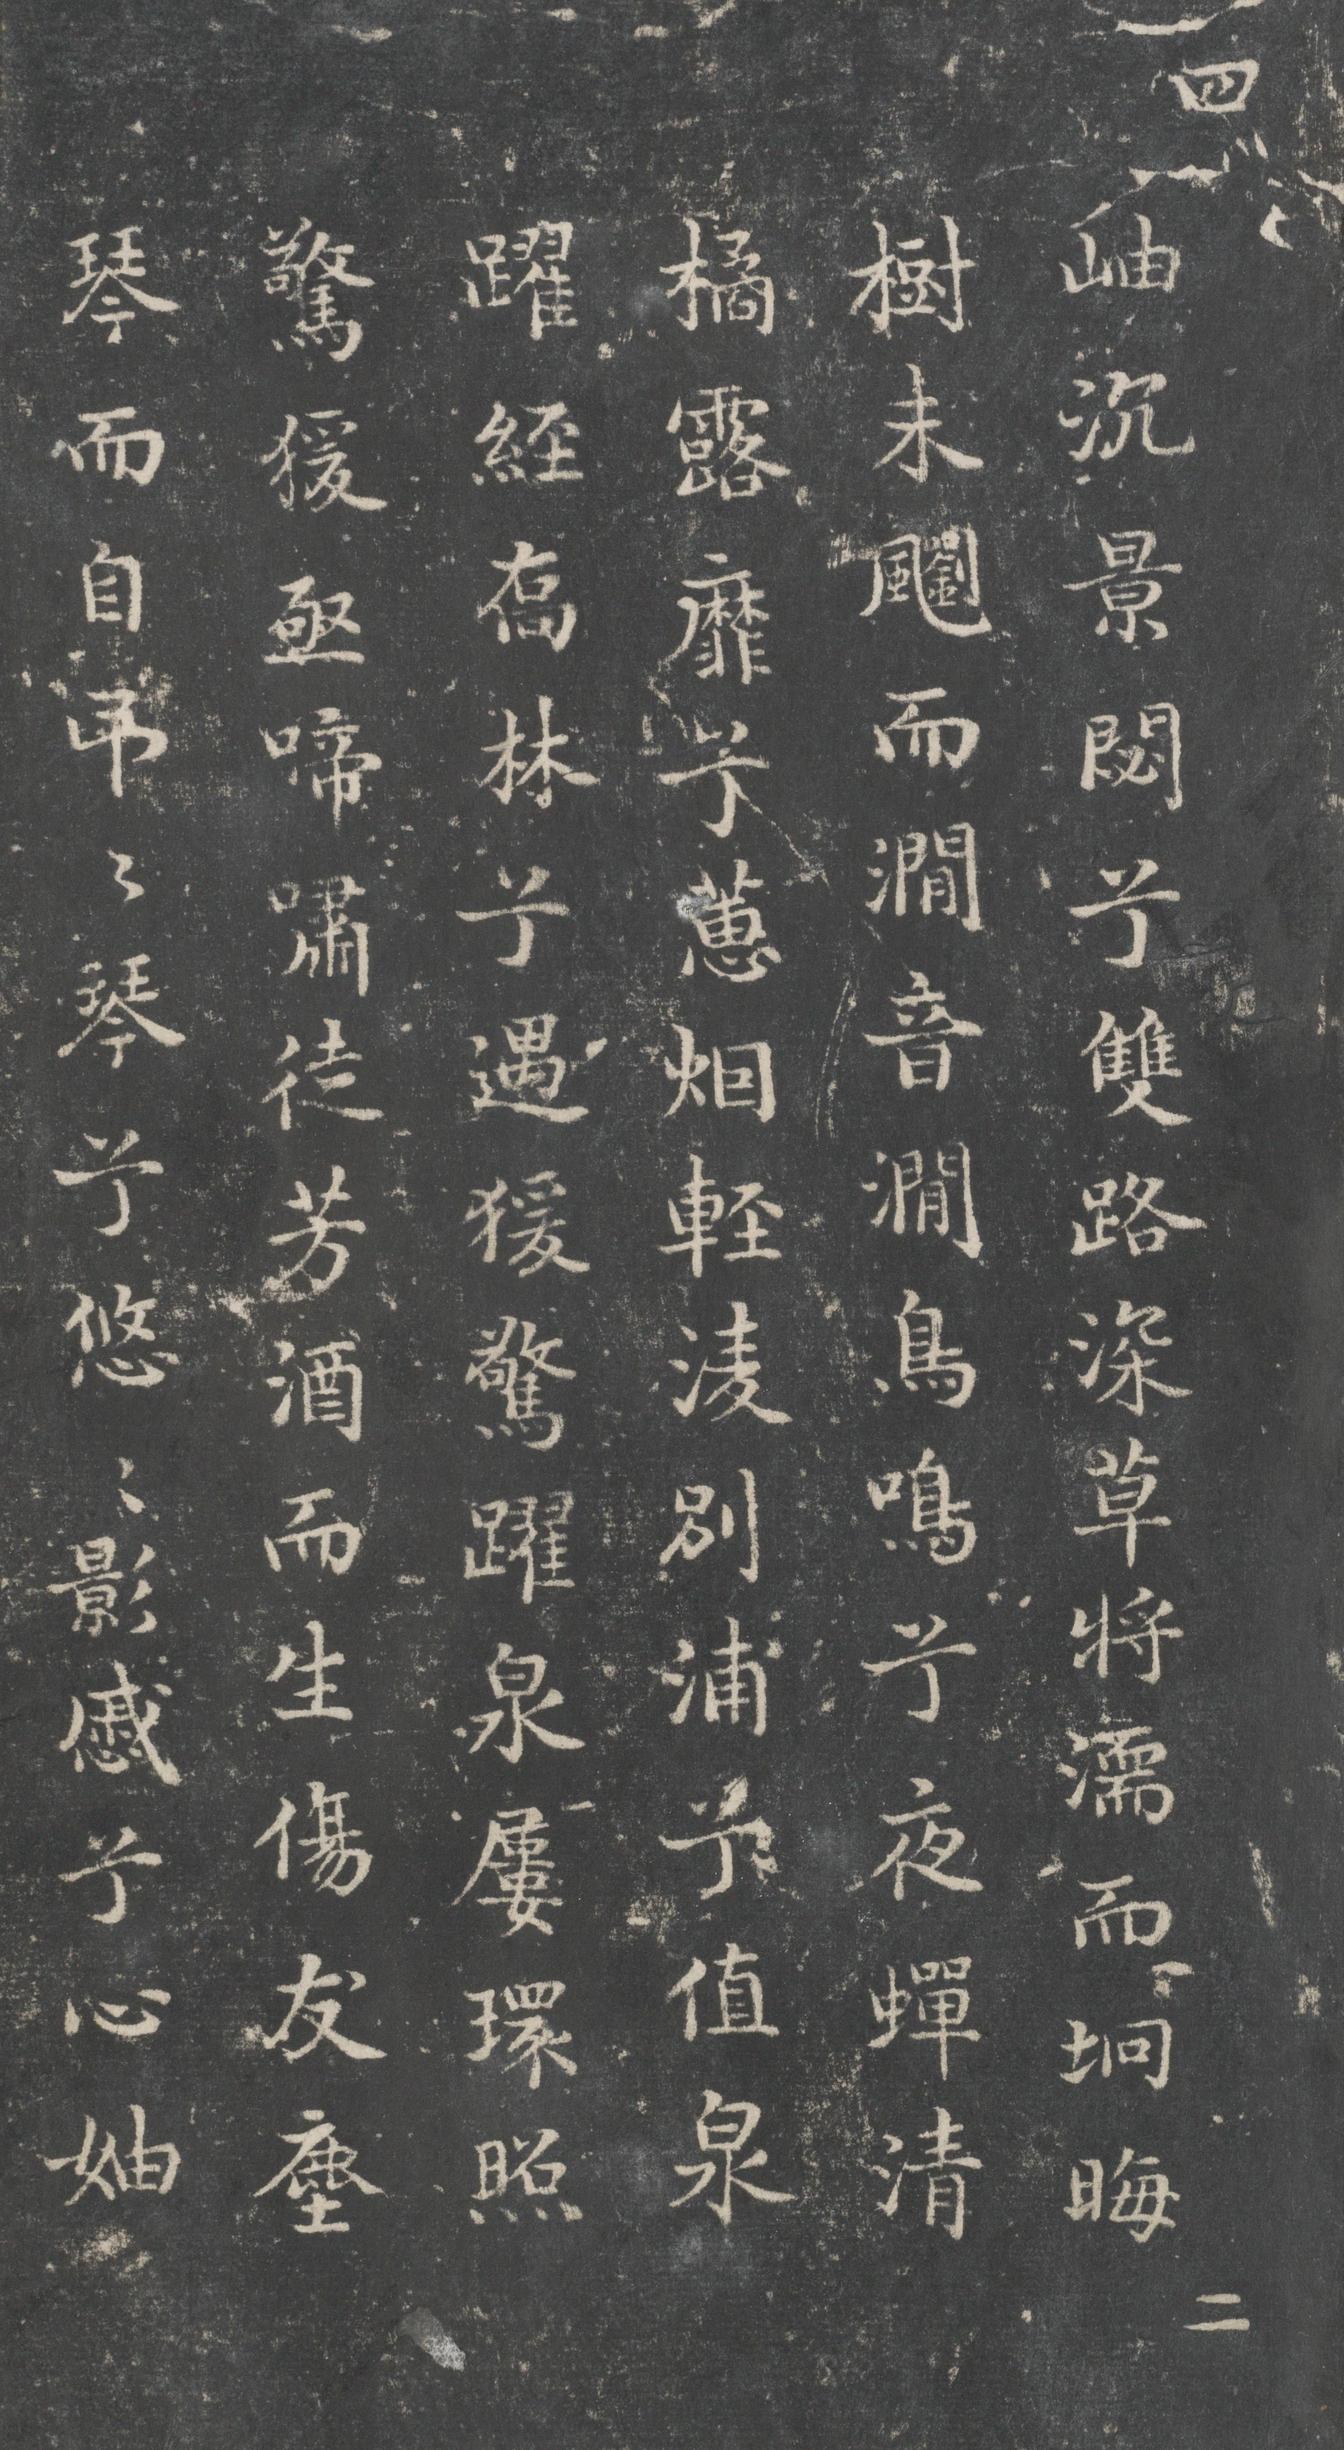 四
岫沉景閟兮雙路深草將濡而坰晦
樹未飀而澗音澗鳥鳴兮夜蟬清
橘露靡兮蕙烟輕淩別浦兮值泉
躍經喬林兮遇猨驚躍泉屢環照
驚猨亟啼嘯徒芳酒而生傷友塵
琴而自吊〻琴兮悠〻影慼兮心妯
二